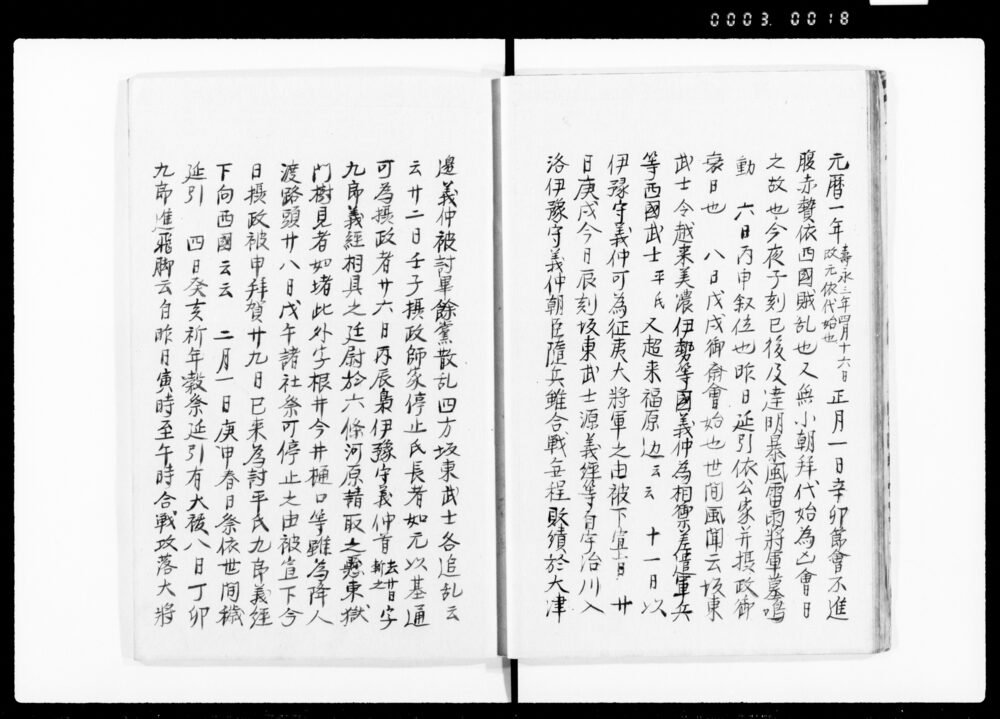 0003 0018
元暦一年 壽永三年四月十六日 改元依代始也 正月一日辛卯節會不進
腹赤贄依西國賊乱也又無小朝拜代始為凶會日
之故也今夜子刻已後及達明暴風雷雨將軍墓鳴
動 六日丙申叙位也昨日延引依公家并摂政御
衰日也 八日戊戌御斎會始也世間風聞云坂東
武士令越来美濃伊勢等國義仲為相禦差遣軍兵
等西國武士平氏又超来福原边云云 十一日以
伊豫守義仲可為征夷大將軍之由被下宣旨 廿
日庚戌今日辰刻坂東武士源義經等自宇治川入
洛伊豫守義仲朝臣隨兵雖合戰無程敗績於大津
邊義仲被討畢餘黨散乱四方坂東武士各追乱云
云廿二日壬子摂政師家停止氏長者如元以基通
可為摂政者廿六日丙辰梟伊豫守義仲首 去廿日 斬之 字
九郎義經相具之廷尉於六條河原請取之懸東獄
門樹見者如堵此外字根井今井樋口等雖為降人
渡路頭廿八日戊午諸社祭可停止之由被宣下今
日摂政被申拜賀廿九日已来為討平氏九郎義經
下向西國云云 二月一日庚申春日祭依世間穢
延引 四日癸亥祈年穀祭延引有大祓八日丁卯
九郎進飛脚云自昨日寅時至午時合戰攻落大將